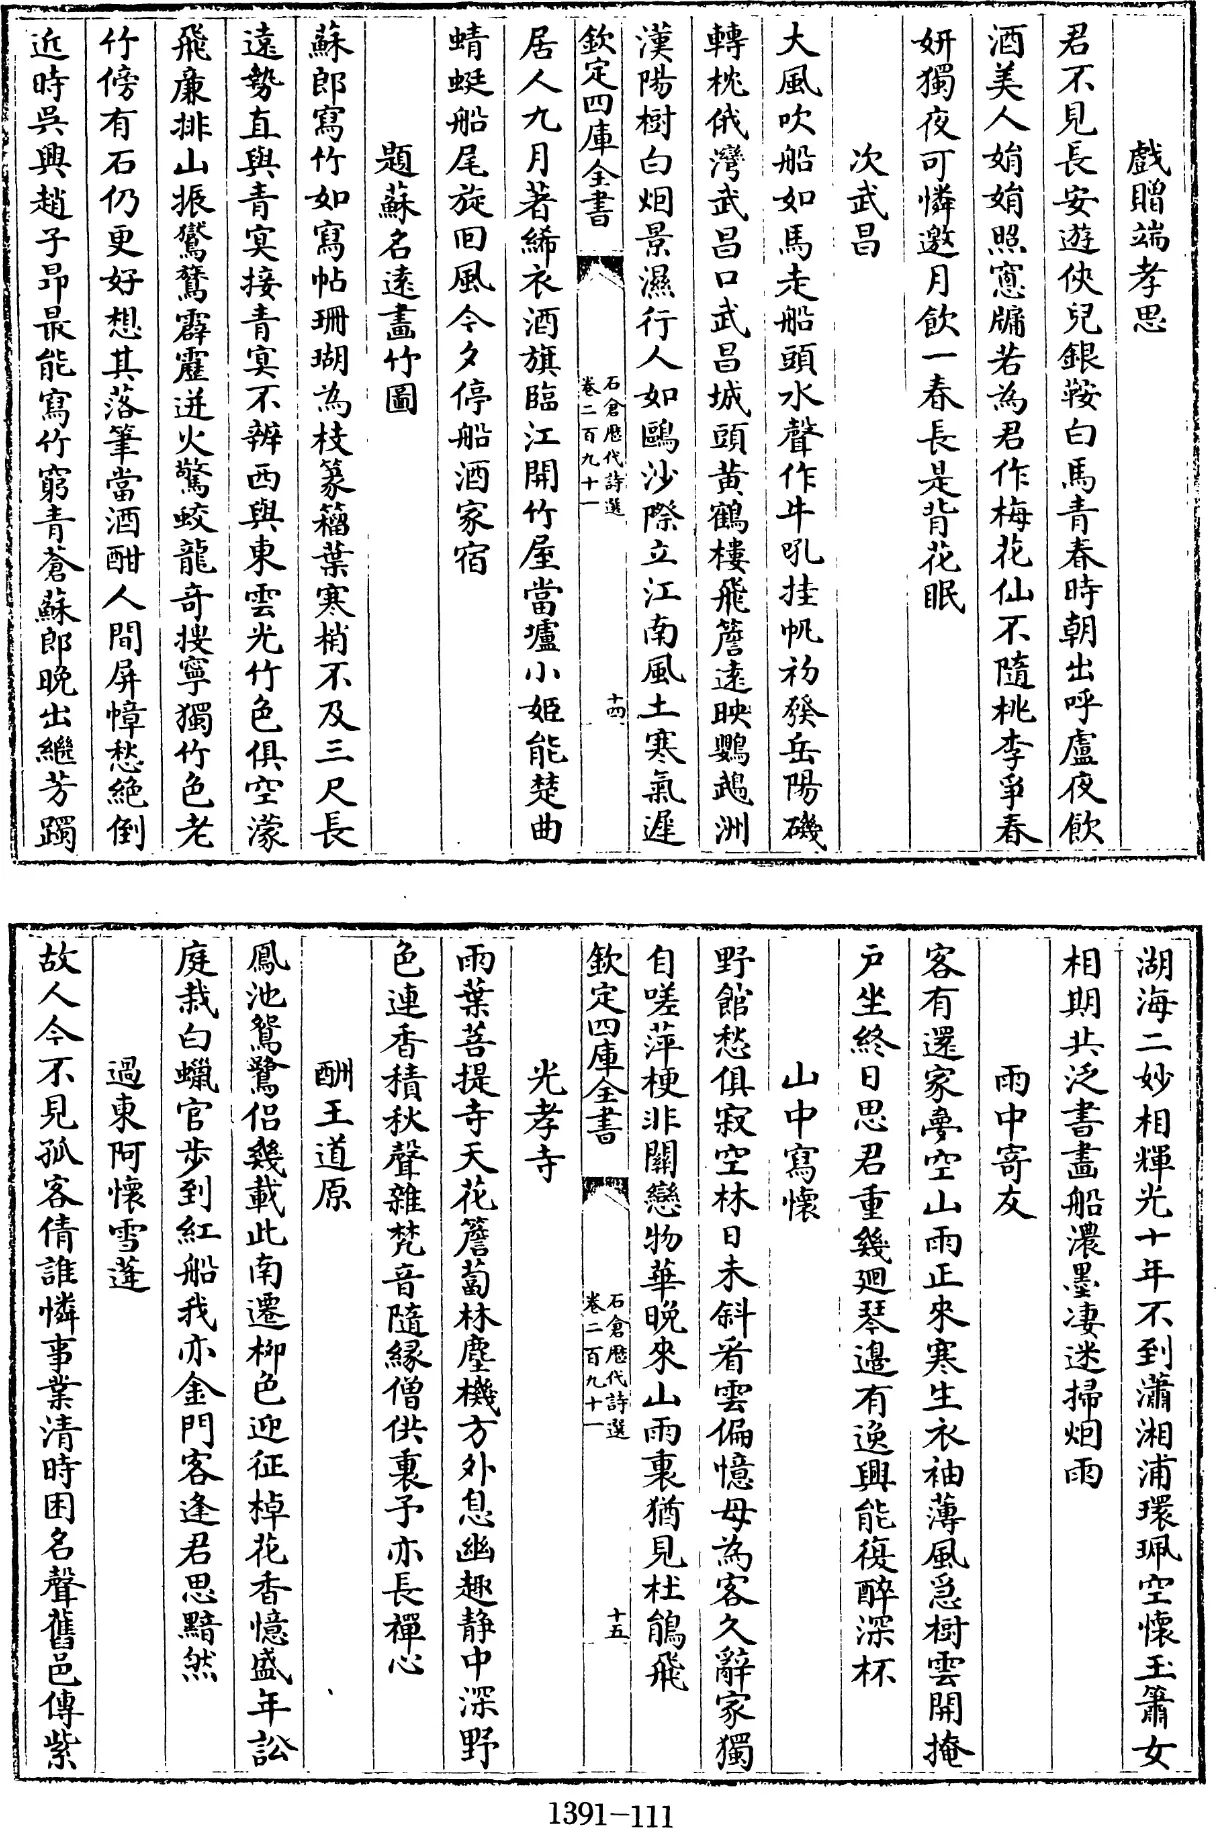 戲贈端孝思
君不見長安遊俠兒銀鞍白馬青春時朝出呼盧夜飲
酒美人娟娟照窻牖若為君作梅花仙不隨桃李爭春
妍獨夜可憐邀月飲一春長是背花眠
次武昌
大風吹船如馬走船頭水聲作牛吼挂帆初發岳陽磯
轉枕俄灣武昌口武昌城頭黄鶴樓飛簷遠映鸚鵡洲
漢陽樹白烟景濕行人如鷗沙際立江南風土寒氣遲
欽定四庫全書
石倉歷代詩選
卷二百九十一
十四
居人九月著絺衣酒旗臨江開竹屋當壚小姬能楚曲
蜻蜓船尾旋回風今夕停船酒家宿
題蘇名逺畫竹圖
蘇郎寫竹如寫帖珊瑚為枝篆籀葉寒梢不及三尺長
遠勢直與青㝠接青㝠不辨西與東雲光竹色俱空濛
飛廉排山振鸑鶩霹靂迸火驚蛟龍奇搜寧獨竹色老
竹傍有石仍更好想其落筆當酒酣人間屏幛愁絶倒
近時吳興趙子昂最能寫竹窮青蒼蘇郎晩出繼芳躅
湖海二妙相輝光十年不到瀟湘浦環珮空懷玉簫女
相期共泛書畫船濃墨淒迷掃烟雨
雨中寄友
客有還家夢空山雨正來寒生衣袖薄風急樹雲開掩
戸坐終日思君重幾廻琴邊有逸興能復醉深杯
山中寫懷
野館愁俱寂空林日未斜看雲偏憶母為客久辭家獨
自嗟萍梗非關戀物華晩來山雨裏猶見杜鵑飛
欽定四庫全書
石倉歷代詩選
卷二百九十一
十五
光孝寺
雨葉菩提寺天花簷蔔林塵機方外息幽趣静中深野
色連香積秋聲雜梵音隨緣僧供裏予亦長禪心
酬王道原
鳳池鴛鷺侣幾載此南遷柳色迎征棹花香憶盛年訟
庭栽白蠟官步到紅船我亦金門客逢君思黯然
過東阿懷雪蓬
故人今不見孤客倩誰憐事業清時困名聲舊邑傳紫
1391-111